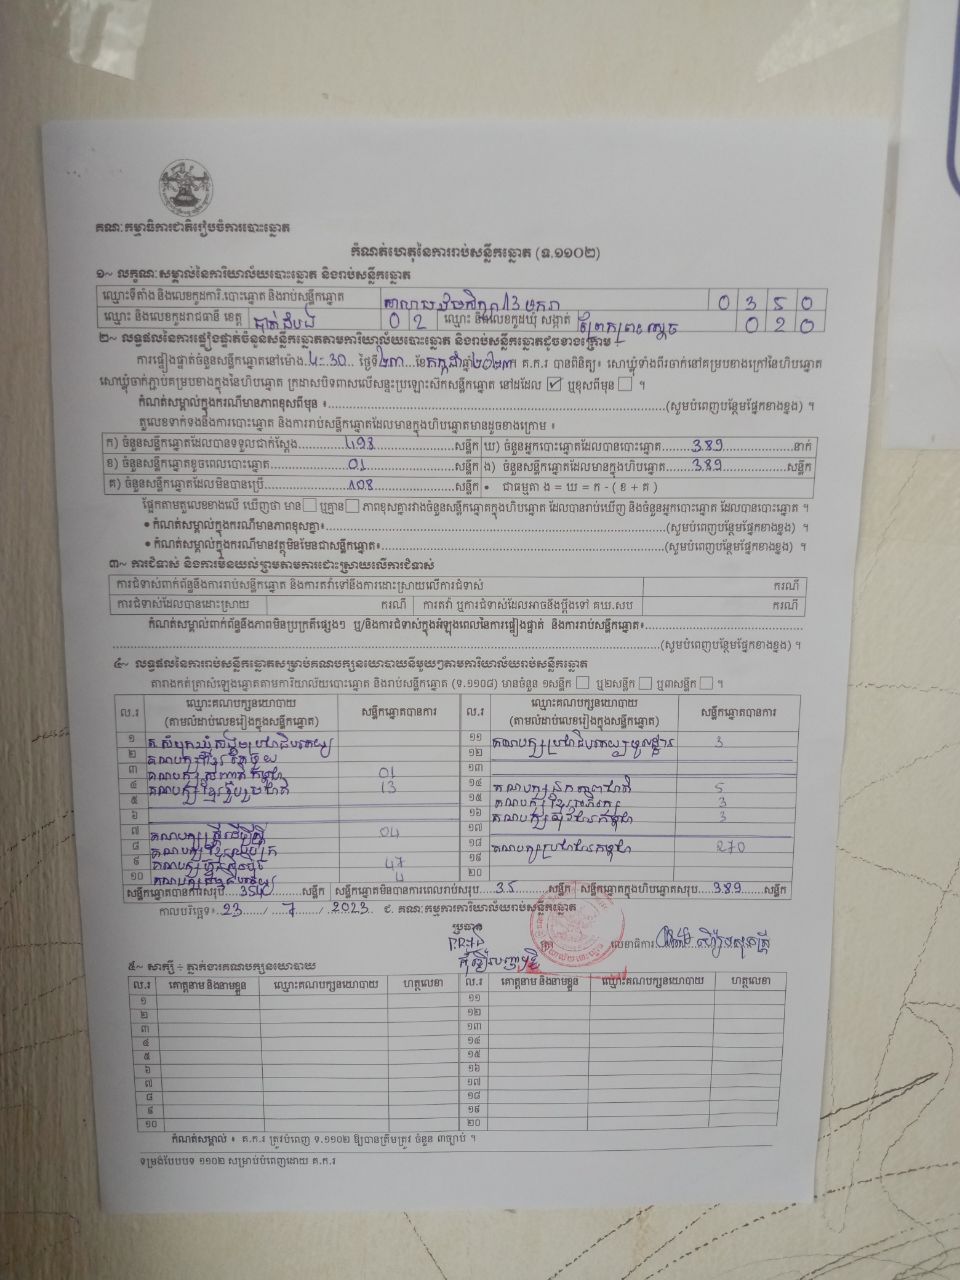 គណៈកម្មាធិការជាតិរៀបចំការបោះឆ្នោត
កំណត់ហេតុនៃការរាប់សន្លឹកឆ្នោត (ទ.១១០២)
១~ លក្ខណៈសម្គាល់នៃការិយាល័យបោះឆ្នោត និងរាប់សន្លឹកឆ្នោត
ឈ្មោះទីតាំង និងលេខកូដការិ.បោះឆ្នោត និងរាប់សន្លឹកឆ្នោត 0 3 5 0
ឈ្មោះ និងលេខកូដរាជធានី ខេត្ត បាត់ដំបង 0 2 ឈ្មោះ និងលេខកូដឃុំ សង្កាត់ ព្រែកព្រះស្ដេច 0 2 0
២~ លទ្ធផលនៃការផ្ទៀងផ្ទាត់ចំនួនសន្លឹកឆ្នោតតាមការិយាល័យបោះឆ្នោត និងរាប់សន្លឹកឆ្នោតដូចខាងក្រោម ÷
ការផ្ទៀងផ្ទាត់ចំនួនសន្លឹកឆ្នោតនៅម៉ោង 4-30 ថ្ងៃទី ២៣ ខែ កក្កដា ឆ្នាំ ២០២៣ គ.ក.រ បានពិនិត្យ៖ សោឃ្លុំទាំងពីរចាក់នៅគម្របខាងក្រៅនៃហិបឆ្នោត
សោឃ្លុំចាក់ភ្ជាប់គម្របខាងក្នុងនៃហិបឆ្នោត ក្រដាសបិទពាសលើសន្ទះប្រឡោះស៊កសន្លឹកឆ្នោត នៅដដែល ☑ ឬខុសពីមុន ☐ ។
កំណត់សម្គាល់ក្នុងករណីមានភាពខុសពីមុន ៖ (សូមបំពេញបន្ថែមផ្នែកខាងខ្នង) ។
តួលេខទាក់ទងនឹងការបោះឆ្នោត និងការរាប់សន្លឹកឆ្នោតដែលមានក្នុងហិបឆ្នោតមានដូចខាងក្រោម ៖
ក) ចំនួនសន្លឹកឆ្នោតដែលបានទទួលជាក់ស្ដែង 498 សន្លឹក ឃ) ចំនួនអ្នកបោះឆ្នោតដែលបានបោះឆ្នោត 389 នាក់
ខ) ចំនួនសន្លឹកឆ្នោតខូចពេលបោះឆ្នោត 01 សន្លឹក ង) ចំនួនសន្លឹកឆ្នោតដែលមានក្នុងហិបឆ្នោត 389 សន្លឹក
គ) ចំនួនសន្លឹកឆ្នោតដែលមិនបានប្រើ 108 សន្លឹក • ជាធម្មតា ង = ឃ = ក - ( ខ + គ )
ផ្អែកតាមតួលេខខាងលើ ឃើញថា មាន ☐ ឬគ្មាន ☐ ភាពខុសគ្នារវាងចំនួនសន្លឹកឆ្នោតក្នុងហិបឆ្នោត ដែលបានរាប់ឃើញ និងចំនួនអ្នកបោះឆ្នោត ដែលបានបោះឆ្នោត ។
• កំណត់សម្គាល់ក្នុងករណីមានភាពខុសគ្នា៖ (សូមបំពេញបន្ថែមផ្នែកខាងខ្នង) ។
• កំណត់សម្គាល់ក្នុងករណីមានវត្ថុមិនមែនជាសន្លឹកឆ្នោត៖ (សូមបំពេញបន្ថែមផ្នែកខាងខ្នង) ។
៣~ ការជំទាស់ និងការមិនយល់ព្រមតាមការដោះស្រាយលើការជំទាស់
ការជំទាស់ពាក់ព័ន្ធនឹងការរាប់សន្លឹកឆ្នោត និងការតវ៉ាទៅនឹងការដោះស្រាយលើការជំទាស់ ករណី
ការជំទាស់ដែលបានដោះស្រាយ ករណី ការតវ៉ា ឬការជំទាស់ដែលអាចនឹងប្ដឹងទៅ គឃ.សប ករណី
កំណត់សម្គាល់ពាក់ព័ន្ធនឹងភាពមិនប្រក្រតីផ្សេងៗ ឬ/និងការជំទាស់ក្នុងអំឡុងពេលនៃការផ្ទៀងផ្ទាត់ និងការរាប់សន្លឹកឆ្នោត៖
(សូមបំពេញបន្ថែមផ្នែកខាងខ្នង) ។
៤~ លទ្ធផលនៃការរាប់សន្លឹកឆ្នោតសម្រាប់គណបក្សនយោបាយនីមួយៗតាមការិយាល័យរាប់សន្លឹកឆ្នោត
តារាងកត់ត្រាសំឡេងឆ្នោតតាមការិយាល័យបោះឆ្នោត និងរាប់សន្លឹកឆ្នោត (ទ.១១០៨) មានចំនួន ១សន្លឹក ☐ ឬ២សន្លឹក ☐ ឬ៣សន្លឹក ☐ ។
ល.រ ឈ្មោះគណបក្សនយោបាយ (តាមលំដាប់លេខរៀងក្នុងសន្លឹកឆ្នោត) សន្លឹកឆ្នោតបានការ ល.រ ឈ្មោះគណបក្សនយោបាយ (តាមលំដាប់លេខរៀងក្នុងសន្លឹកឆ្នោត) សន្លឹកឆ្នោតបានការ
១ ១១ 3
២ ១២
៣ 01 ១៣
៤ គណបក្សខ្មែររួបរួមជាតិ 13 ១៤ 5
៥ ១៥ 3
៦ ១៦ 3
៧ 04 ១៧
៨ ១៨ គណបក្សប្រជាជនកម្ពុជា 270
៩ 47 ១៩
១០ ២០
សន្លឹកឆ្នោតបានការសរុប 354 សន្លឹក សន្លឹកឆ្នោតមិនបានការពេលរាប់សរុប 35 សន្លឹក សន្លឹកឆ្នោតក្នុងហិបឆ្នោតសរុប 389 សន្លឹក
កាលបរិច្ឆេទ៖ 23 / 7 / 2023 ៩. គណៈកម្មការការិយាល័យរាប់សន្លឹកឆ្នោត
ប្រធាន
លេខាធិការ
៥~ សាក្សី ÷ ភ្នាក់ងារគណបក្សនយោបាយ
ល.រ គោត្តនាម និងនាមខ្លួន ឈ្មោះគណបក្សនយោបាយ ហត្ថលេខា ល.រ គោត្តនាម និងនាមខ្លួន ឈ្មោះគណបក្សនយោបាយ ហត្ថលេខា
១ ១១
២ ១២
៣ ១៣
៤ ១៤
៥ ១៥
៦ ១៦
៧ ១៧
៨ ១៨
៩ ១៩
១០ ២០
កំណត់សម្គាល់ ៖ គ.ក.រ ត្រូវបំពេញ ទ.១១០២ ឱ្យបានត្រឹមត្រូវ ចំនួន ៣ច្បាប់ ។
ទម្រង់បែបបទ ១១០២ សម្រាប់បំពេញដោយ គ.ក.រ